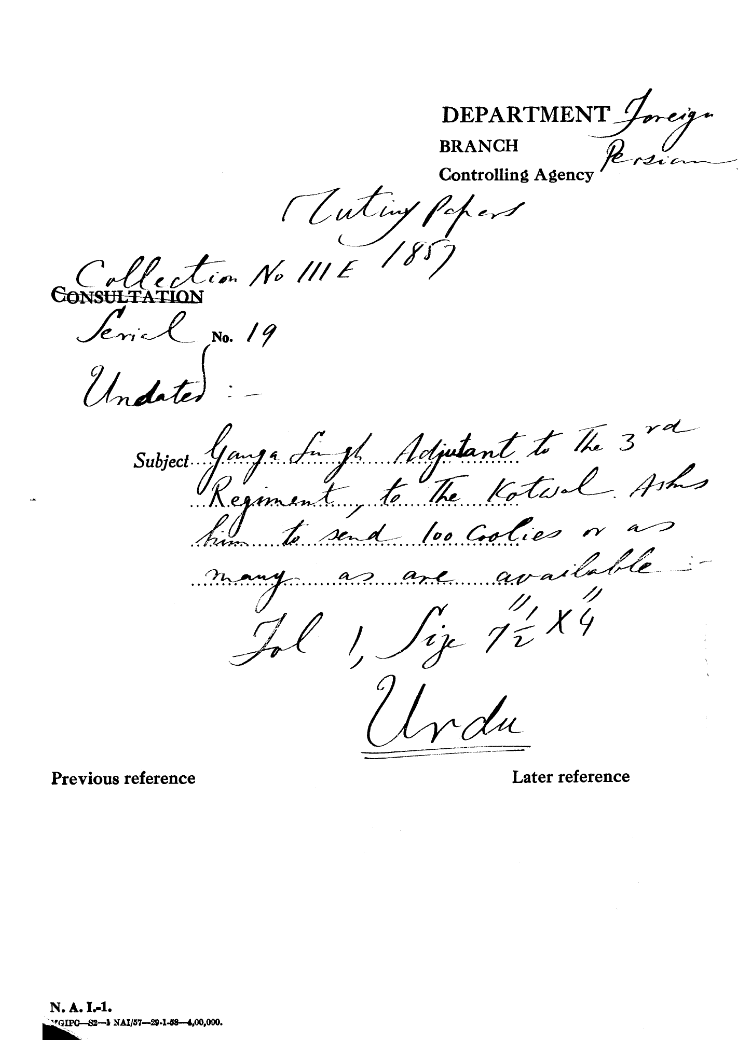 DEPARTMENT Foreign
BRANCH Persian
Controlling Agency
Mutiny Papers
1857
Collection No III E
CONSULTATION
Serial No. 19
Undated :-
Subject Ganga Singh Adjutant to the 3rd
Regiment, to the Kotwal. Asks
him to send 100 Coolies or as
many as are available :-
Fol 1, Size 7½" X 4"
Urdu
Previous reference Later reference
N. A. I.-1.
MGIPC—S2—1 NAI/57—29-1-58—4,00,000.